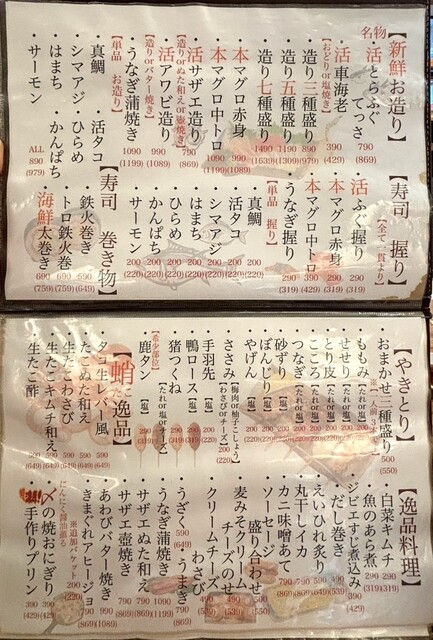 【新鮮 お造り】
名物
・活とらふぐ てっさ 790 (869)
・活車海老 390 (429)
【おどり or 塩焼き】
・造り三種盛り 890 (979)
・造り五種盛り 1190 (1309)
・造り七種盛り 1490 (1639)
・本マグロ赤身 990 (1089)
・本マグロ中トロ 1090 (1199)
・活サザエ造り 790 (869)
【造り or ぬた和え or 壺焼き】
・活アワビ造り 990 (1089)
【造り or バター焼き】
・うなぎ蒲焼き 1090 (1199)
【単品 お造り】
・真鯛 ・活タコ
・シマアジ ・ひらめ
・はまち ・かんぱち
・サーモン
ALL 890 (979)
【寿司 握り】
【全て一貫より】
・活ふぐ握り 290 (319)
・本マグロ赤身 290 (319)
・本マグロ中トロ 390 (429)
・うなぎ握り 290 (319)
【単品 握り】
・真鯛 200 (220)
・活タコ 200 (220)
・シマアジ 200 (220)
・はまち 200 (220)
・ひらめ 200 (220)
・かんぱち 200 (220)
・サーモン 200 (220)
【寿司 巻き物】
・鉄火巻き 590 (649)
・トロ鉄火巻 690 (759)
・海鮮太巻き 690 (759)
【やきとり】
・おまかせ三種盛り 500 (550)
・ももみ【たれ or 塩】 200 (220)
・せせり【たれ or 塩】 200 (220)
・とり皮【たれ or 塩】 200 (220)
・こころ【たれ or 塩】 200 (220)
・つなぎ【たれ or 塩】 200 (220)
・砂ずり【塩】 200 (220)
・ぼんじり【塩】 200 (220)
・やげん【塩】 200 (220)
・ささみ【梅肉 or 柚子こしょう】【わさび or チーズ】 200 (220)
・手羽先【塩】 200 (220)
・鴨ロース【塩】 290 (319)
・猪つくね【たれ or 塩 or チーズ】 290 (319)
【希少部位】
・鹿タン【塩】 290 (319)
【蛸 逸品】
・タコ生レバー風 590 (649)
・たこぬた和え 590 (649)
・生たこわさび 590 (649)
・生たこキムチ和え 590 (649)
・生たこ酢 590 (649)
【逸品料理】
・白菜キムチ 290 (319)
・魚のあら煮 290 (319)
・ジビエすじ煮込み 390 (429)
・だし巻き 490 (539)
・えいひれ炙り 590 (649)
・丸干しイカ 790 (869)
・カニ味噌あて 790 (869)
・ソーセージ盛り合わせ
・麦みそクリームチーズのせ
・クリームチーズわさび 490 (539)
・うざく 590 (649) ・うまき
・うなぎ蒲焼き
・サザエぬた和え 790 (869)
・サザエ壺焼き 790 (869)
・あわびバター焼き 990 (1089)
・きまぐれアヒージョ 790 (869)
※追加バケット 200 (220)
にんにく醤油薫る
・〆の焼おにぎり 390 (429)
・手作りプリン 390 (429)